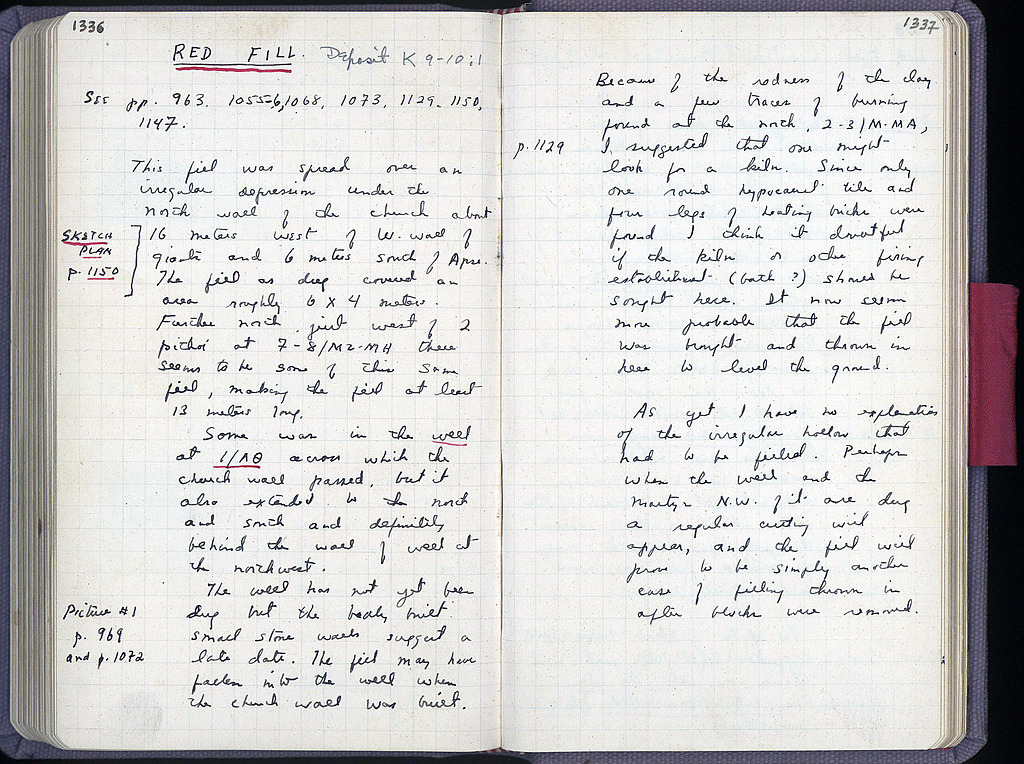 1336
RED FILL. Deposit K 9-10:1
See pp. 963, 1055-6, 1068, 1073, 1129, 1150,
1147.
This fill was spread over an
irregular depression under the
north wall of the church about
SKETCH
PLAN
p. 1150
16 meters west of W. wall of
giants and 6 meters south of Apse.
The fill as dug covered an
area roughly 6 x 4 meters.
Further north, just west of 2
pithoi at 7-8/ΜΖ-ΜΗ there
seems to be some of this same
fill, making the fill at least
13 meters long.
Some was in the well
at 1/ΛΘ across which the
church wall passed, but it
also extended to the north
and south and definitely
behind the wall of well at
the northwest.
The well has not yet been
Picture #1
p. 969
and p. 1072
dug but the badly built
small stone walls suggest a
late date. The fill may have
fallen into the well when
the church wall was built.
1337
Because of the redness of the clay
and a few traces of burning
found at the north, 2-3/Μ-ΜΑ,
p. 1129
I suggested that one might
look for a kiln. Since only
one round hypocaust tile and
four legs of heating bricks were
found I think it doubtful
if the kiln or other firing
establishment (bath?) should be
sought here. It now seems
more probable that the fill
was brought and thrown in
here to level the ground.
As yet I have no explanation
of the irregular hollow that
had to be filled. Perhaps
when the well and the
martyr N.W. of it are dug
a regular cutting will
appear, and the fill will
prove to be simply another
case of filling thrown in
after blocks were removed.